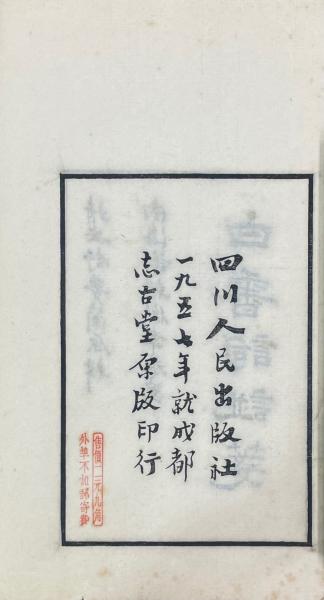 四川人民出版社
一九五七年就成都
志古堂原版印行
售價二元九角
外埠不加郵寄費